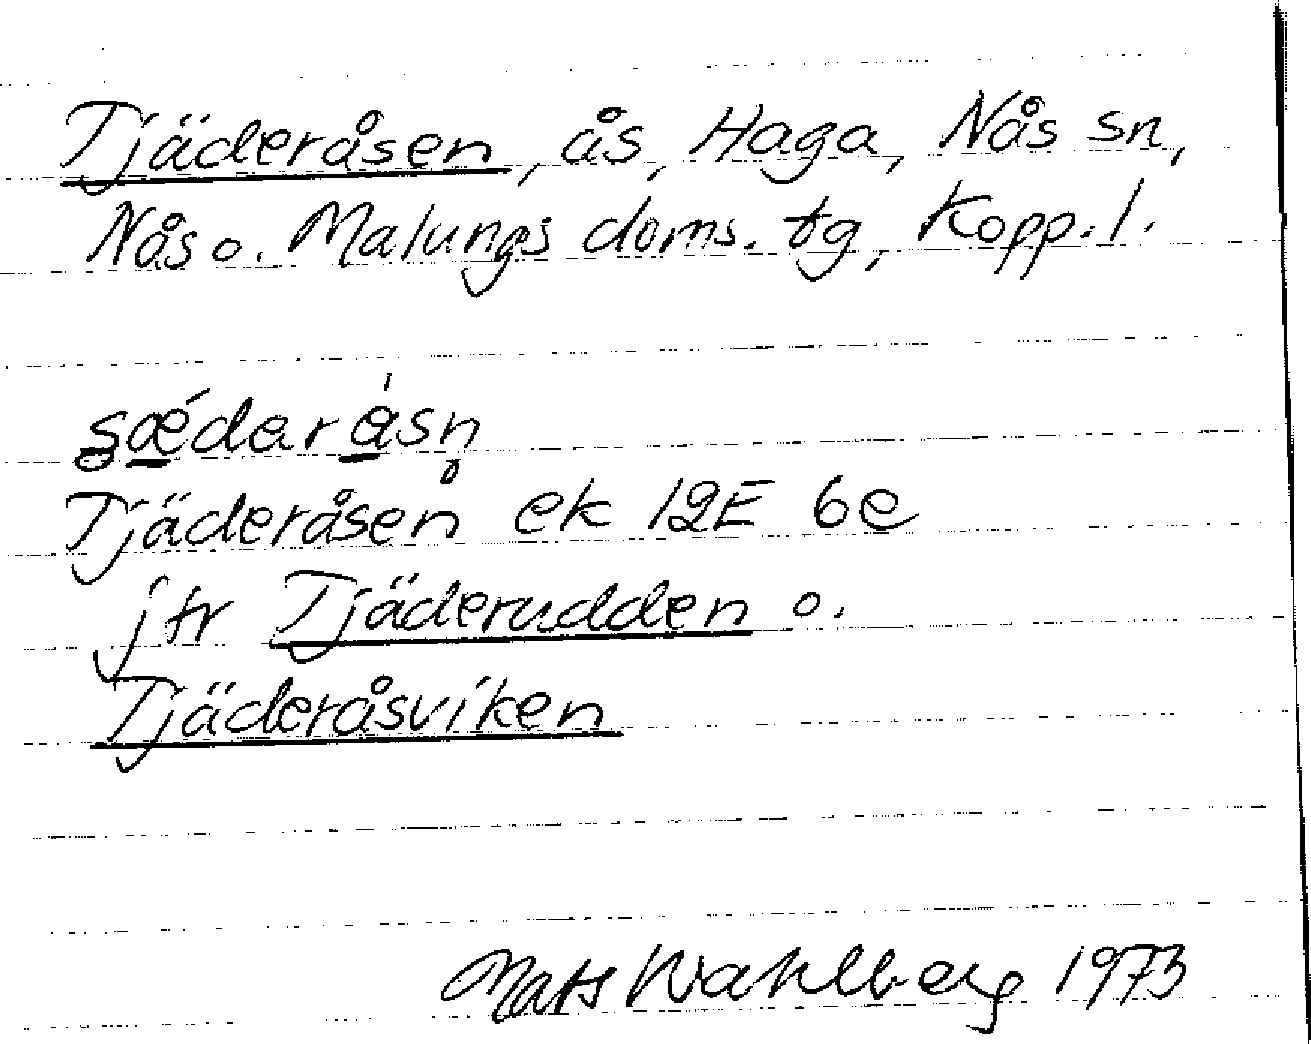 Tjäderåsen, ås, Haga, Nås sn,
Nås o. Malungs doms. tg, Kopp. l.
Tjäderåsen ek 12E 6e
jfr Tjäderudden o.
Tjäderåsviken
Mats Wahlberg 1973